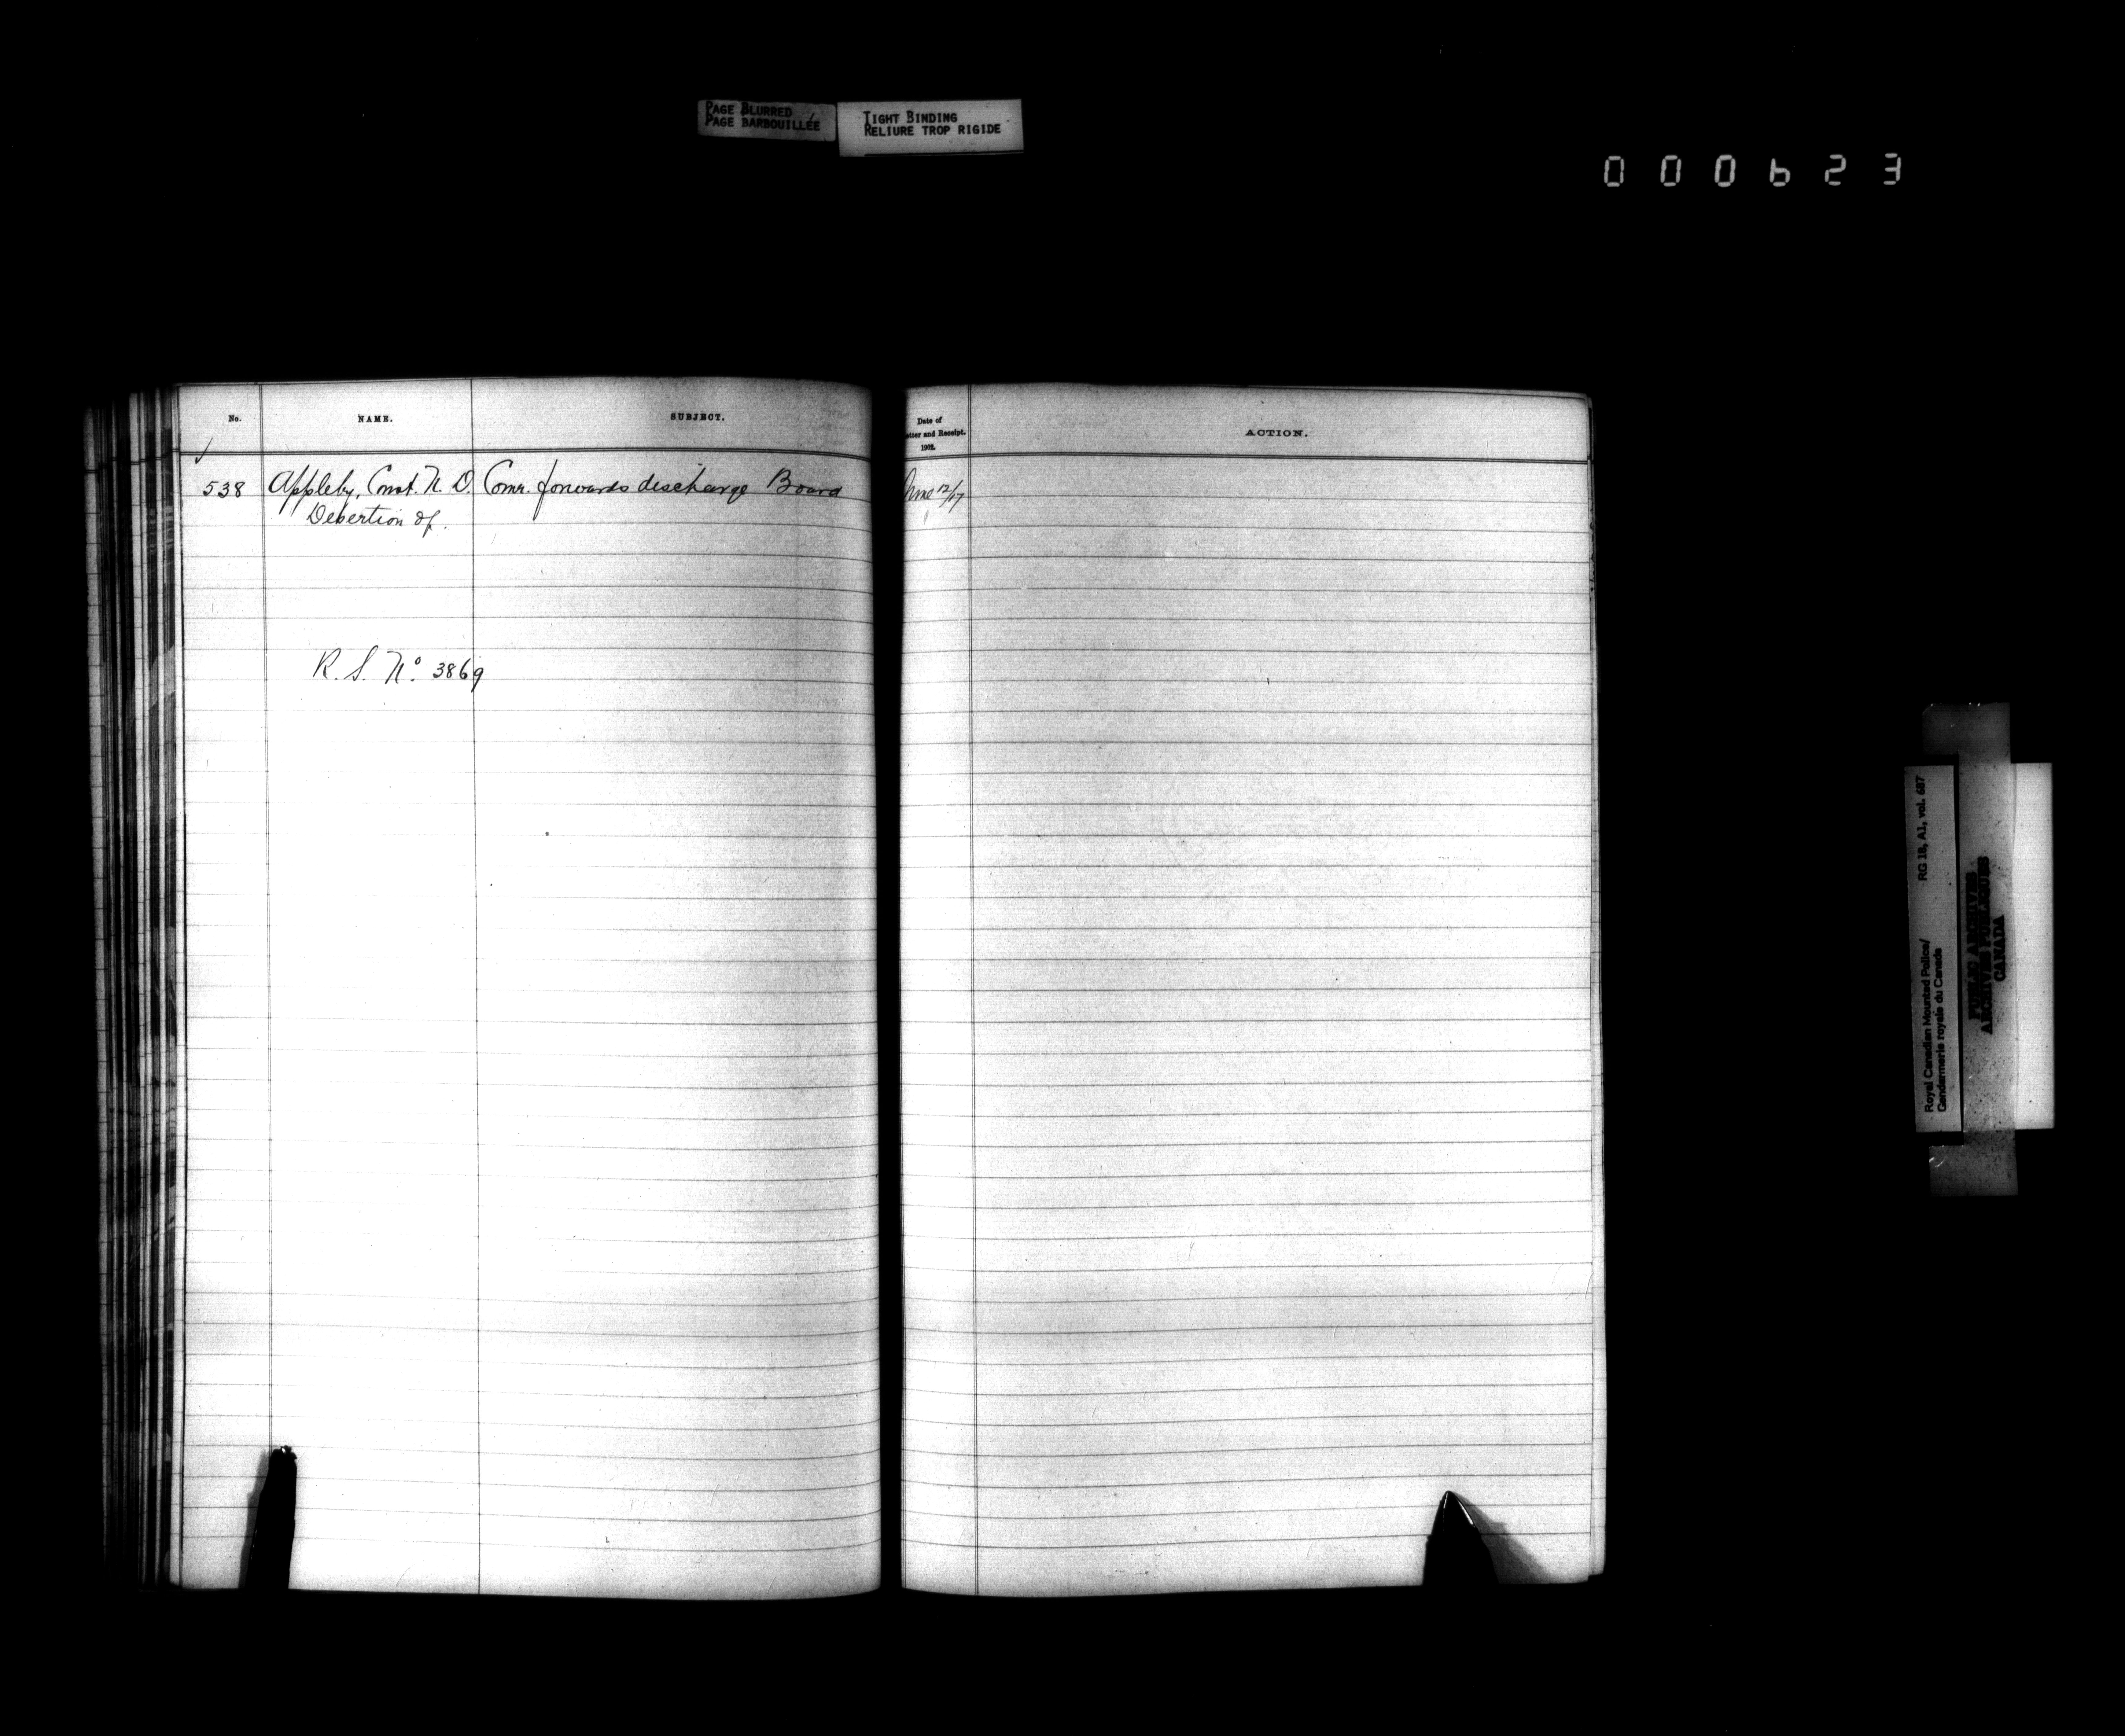 PAGE BLURRED
PAGE BARBOUILLÉE
TIGHT BINDING
RELIURE TROP RIGIDE
000623
No.
NAME.
SUBJECT.
538 Appleby, Const. N. D. Comr. forwards discharge Board
Desertion of.
R. S. No. 3869
Date of
etter and Receipt.
1902.
ACTION.
June 12/17
Royal Canadian Mounted Police/ RG 18, A1, vol. 687
Gendarmerie royale du Canada
PUBLIC ARCHIVES
ARCHIVES PUBLIQUES
CANADA